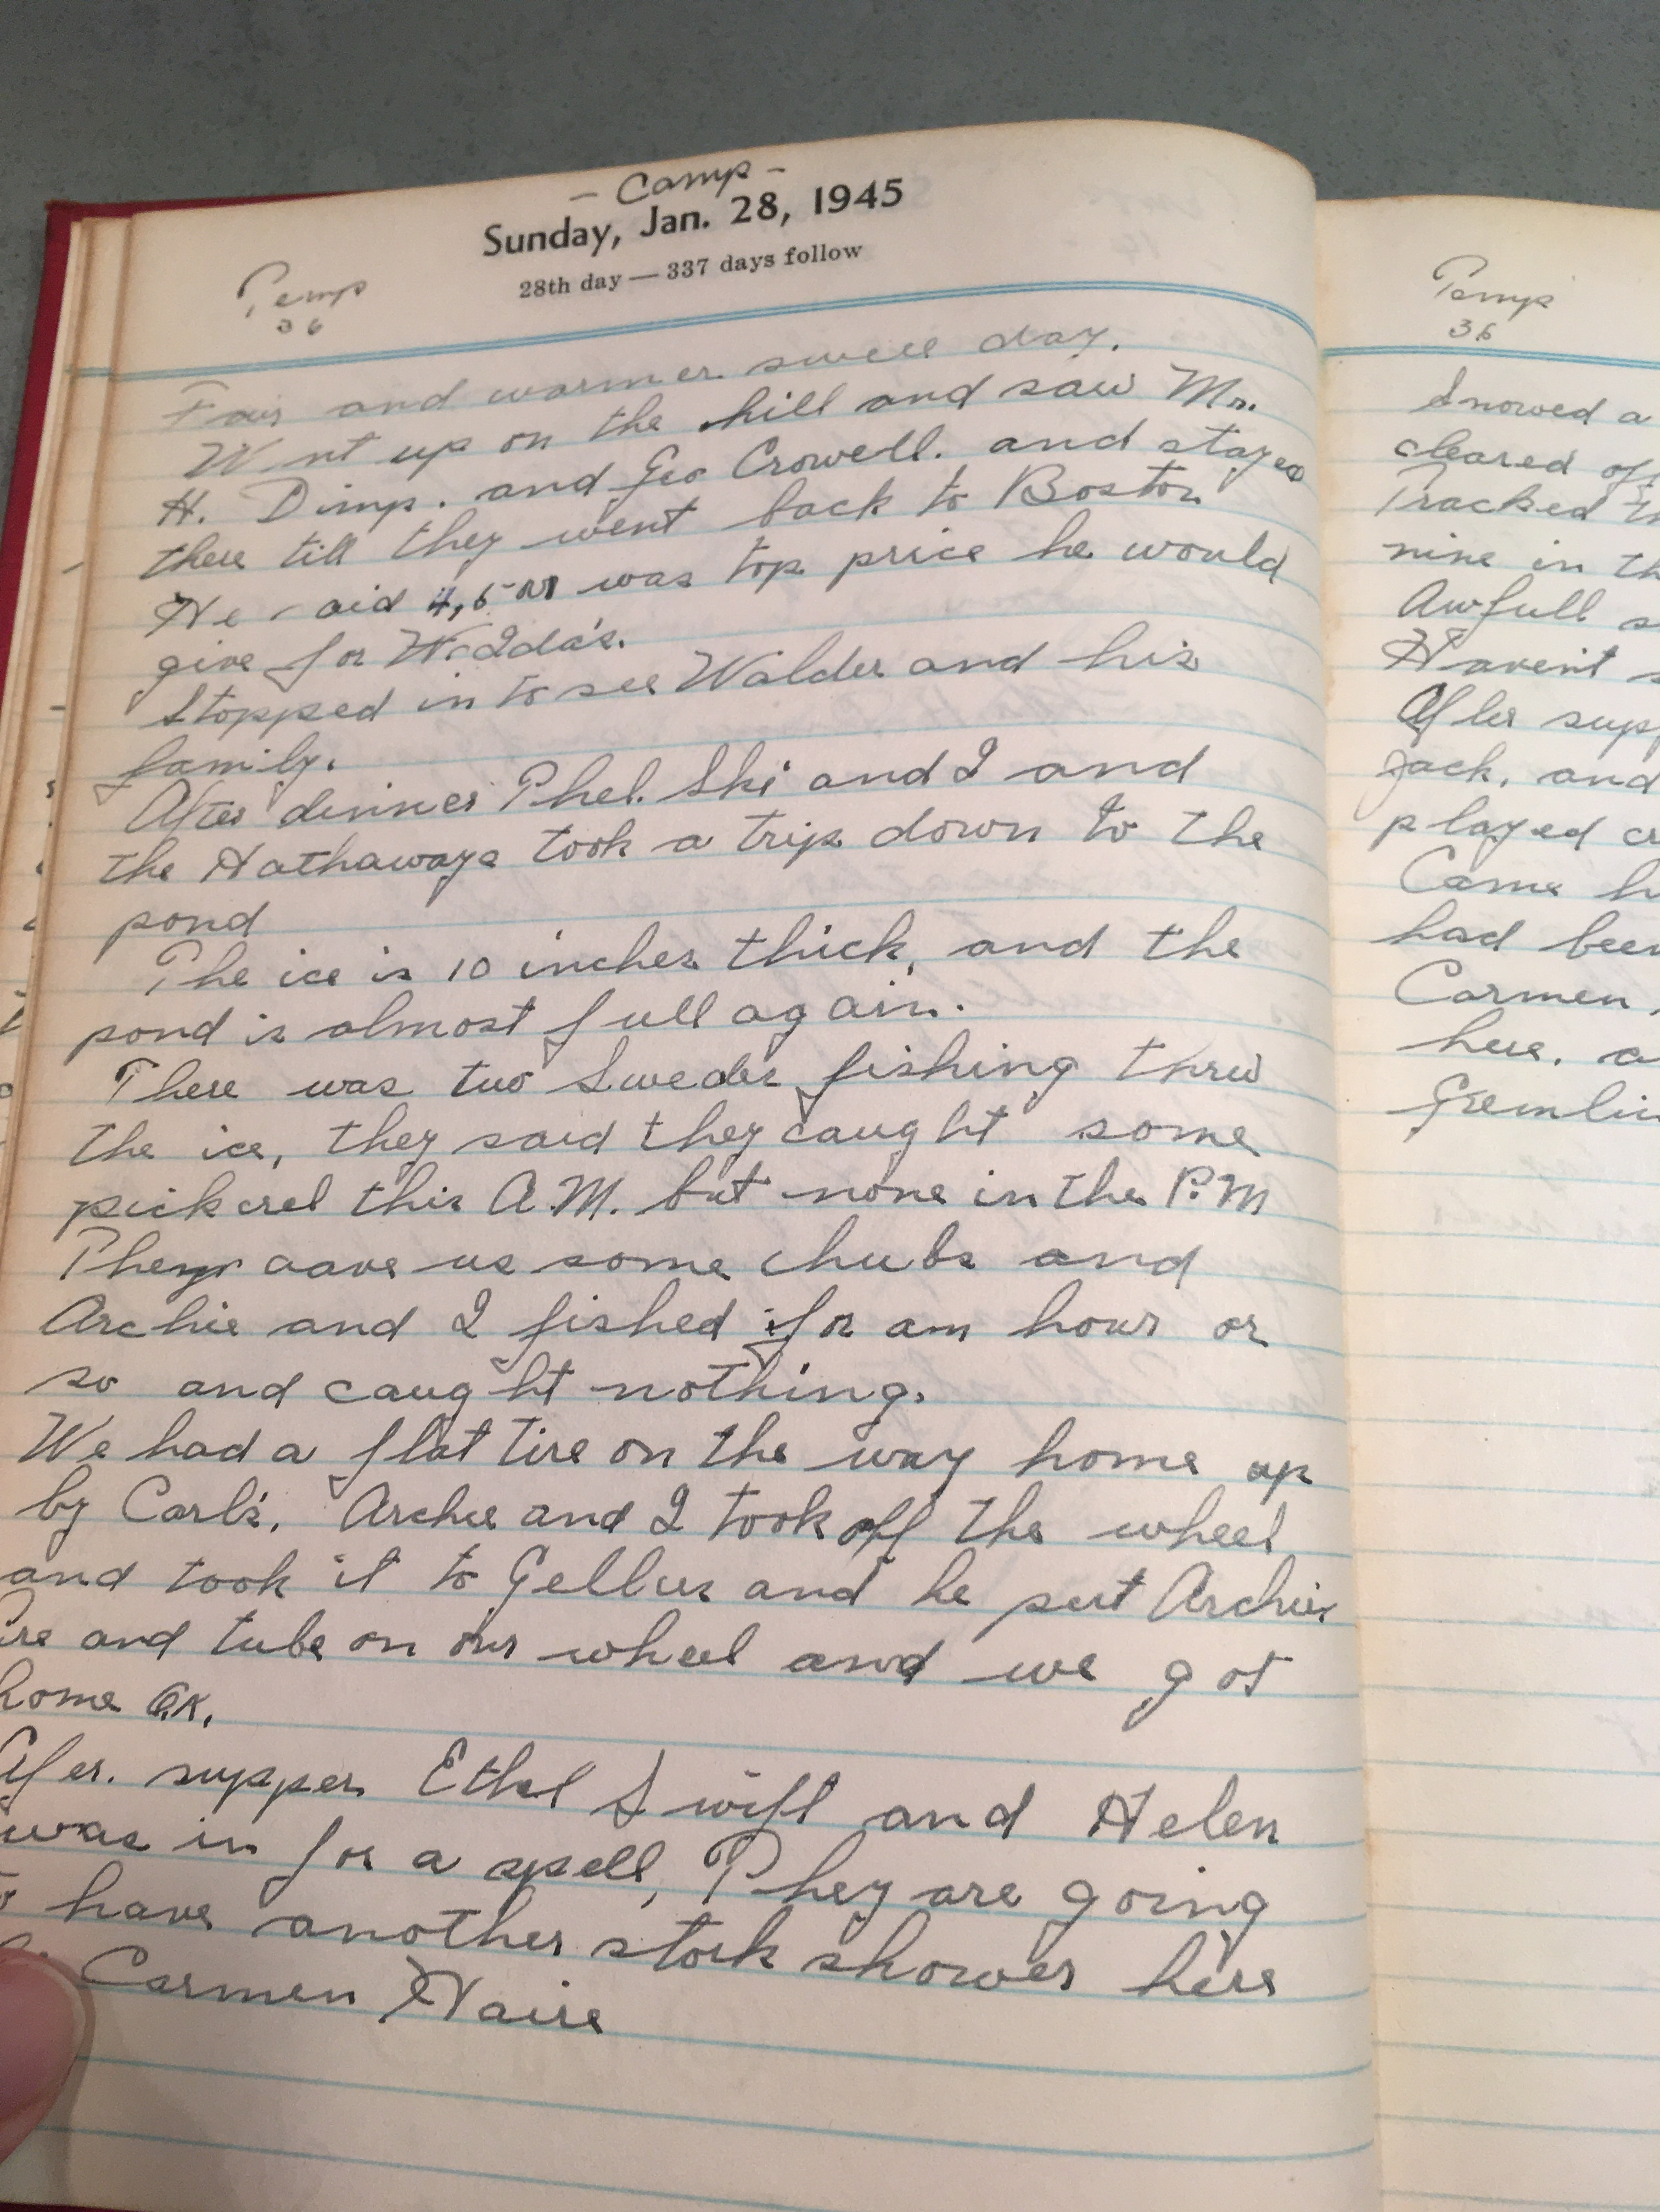 - Camp -
Sunday, Jan. 28, 1945
28th day — 337 days follow
Temp
36
Fair and warmer swell day.
Went up on the hill and saw Mr.
H. Dimp. and Geo Crowell. and stayed
there till they went back to Boston
He said was top price he would
give for
Stopped in to see Walder and his
family.
After dinner Phel. Ski and I and
the Hathaways took a trip down to the
pond
The ice is 10 inches thick, and the
pond is almost full again.
There was two Swedes fishing thru
the ice, they said they caught some
pickerel this A.M. but none in the P.M
They gave us some chubs and
Archie and I fished for am hour or
so and caught nothing.
We had a flat tire on the way home up
by Carl's. Archie and I took off the wheel
and took it to and he put Archie's
and tube on our wheel and we got
home O.K.
Afer. supper Ethel Swift and Helen
was in for a spell, They are going
have another stork shower here
Carmen
Temp
36
Snowed a
cleared off
Tracked
nine in
Awfull
Havent
After
Jack, and
played
Came
had been
Carmen,
here. a